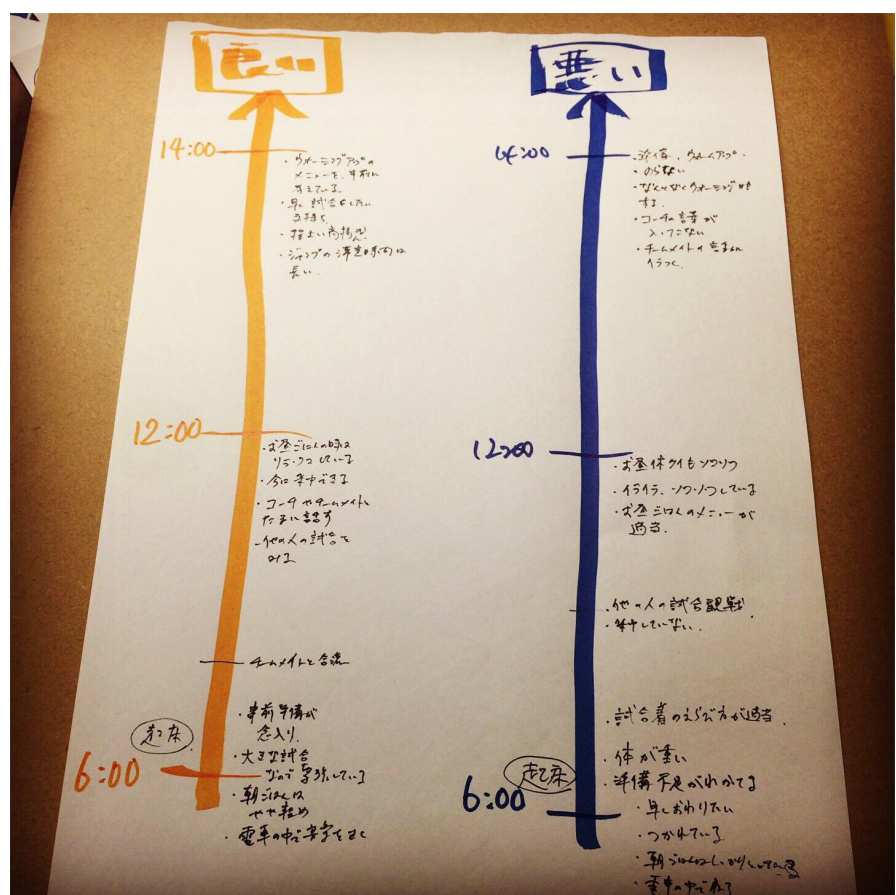 良い
14:00
・ウォーミングアップの
メニューを、事前に
考えている。
・早く試合をしたい
気持ち
・程よい高揚感
・ジャンプの滞空時間は
長い.
12:00
・お昼ごはんの時は
リラックスしている
・今に集中できる
・コーチやチームメイトと
たまに話す
・他の人の試合を
みる
チームメイトと合流
・事前準備が
念入り.
起床
6:00
・大きな試合
なので緊張している
・朝ごはんは
やや軽め
・電車の中で
悪い
14:00
・準備、ウォームアップ.
・のらない
・なんとなくウォーミングUP
する.
・コーチの言葉が
入ってこない
・チームメイトの言葉に
イラつく.
12:00
・お昼休ケイもソワソワ
・イライラ、ソワソワしている
・お昼ごはんのメニューが
適当.
・他の人の試合観戦
・集中していない.
・試合着のえらび方が適当.
・体が重い
起床
・準備不足がわかってる
6:00
・早くおわりたい
・つかれている
・朝ごはんはしっかり
・電車の中でねる